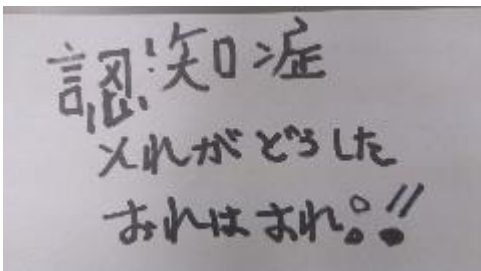 認知症
それがどうした
おれはおれ。!!